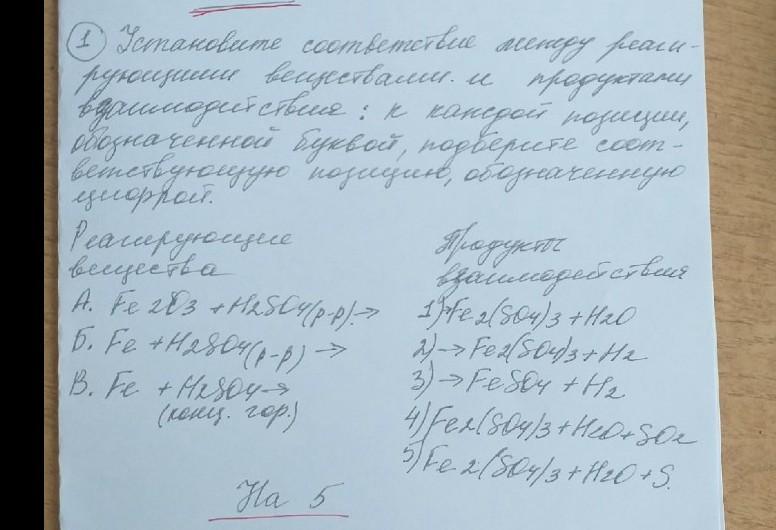 1 Установите соответствие между реаги-
рующими веществами и продуктами
взаимодействия: к каждой позиции,
обозначенной буквой, подберите соот-
ветствующую позицию, обозначенную
цифрой.
Реагирующие
вещества
А. Fe2O3 + H2SO4(р-р) →
Б. Fe + H2SO4(р-р) →
В. Fe + H2SO4 →
(конц. гор.)
Продукты
взаимодействия
1) Fe2(SO4)3 + H2O
2) → Fe2(SO4)3 + H2
3) → FeSO4 + H2
4) Fe2(SO4)3 + H2O + SO2
5) Fe2(SO4)3 + H2O + S.
На 5